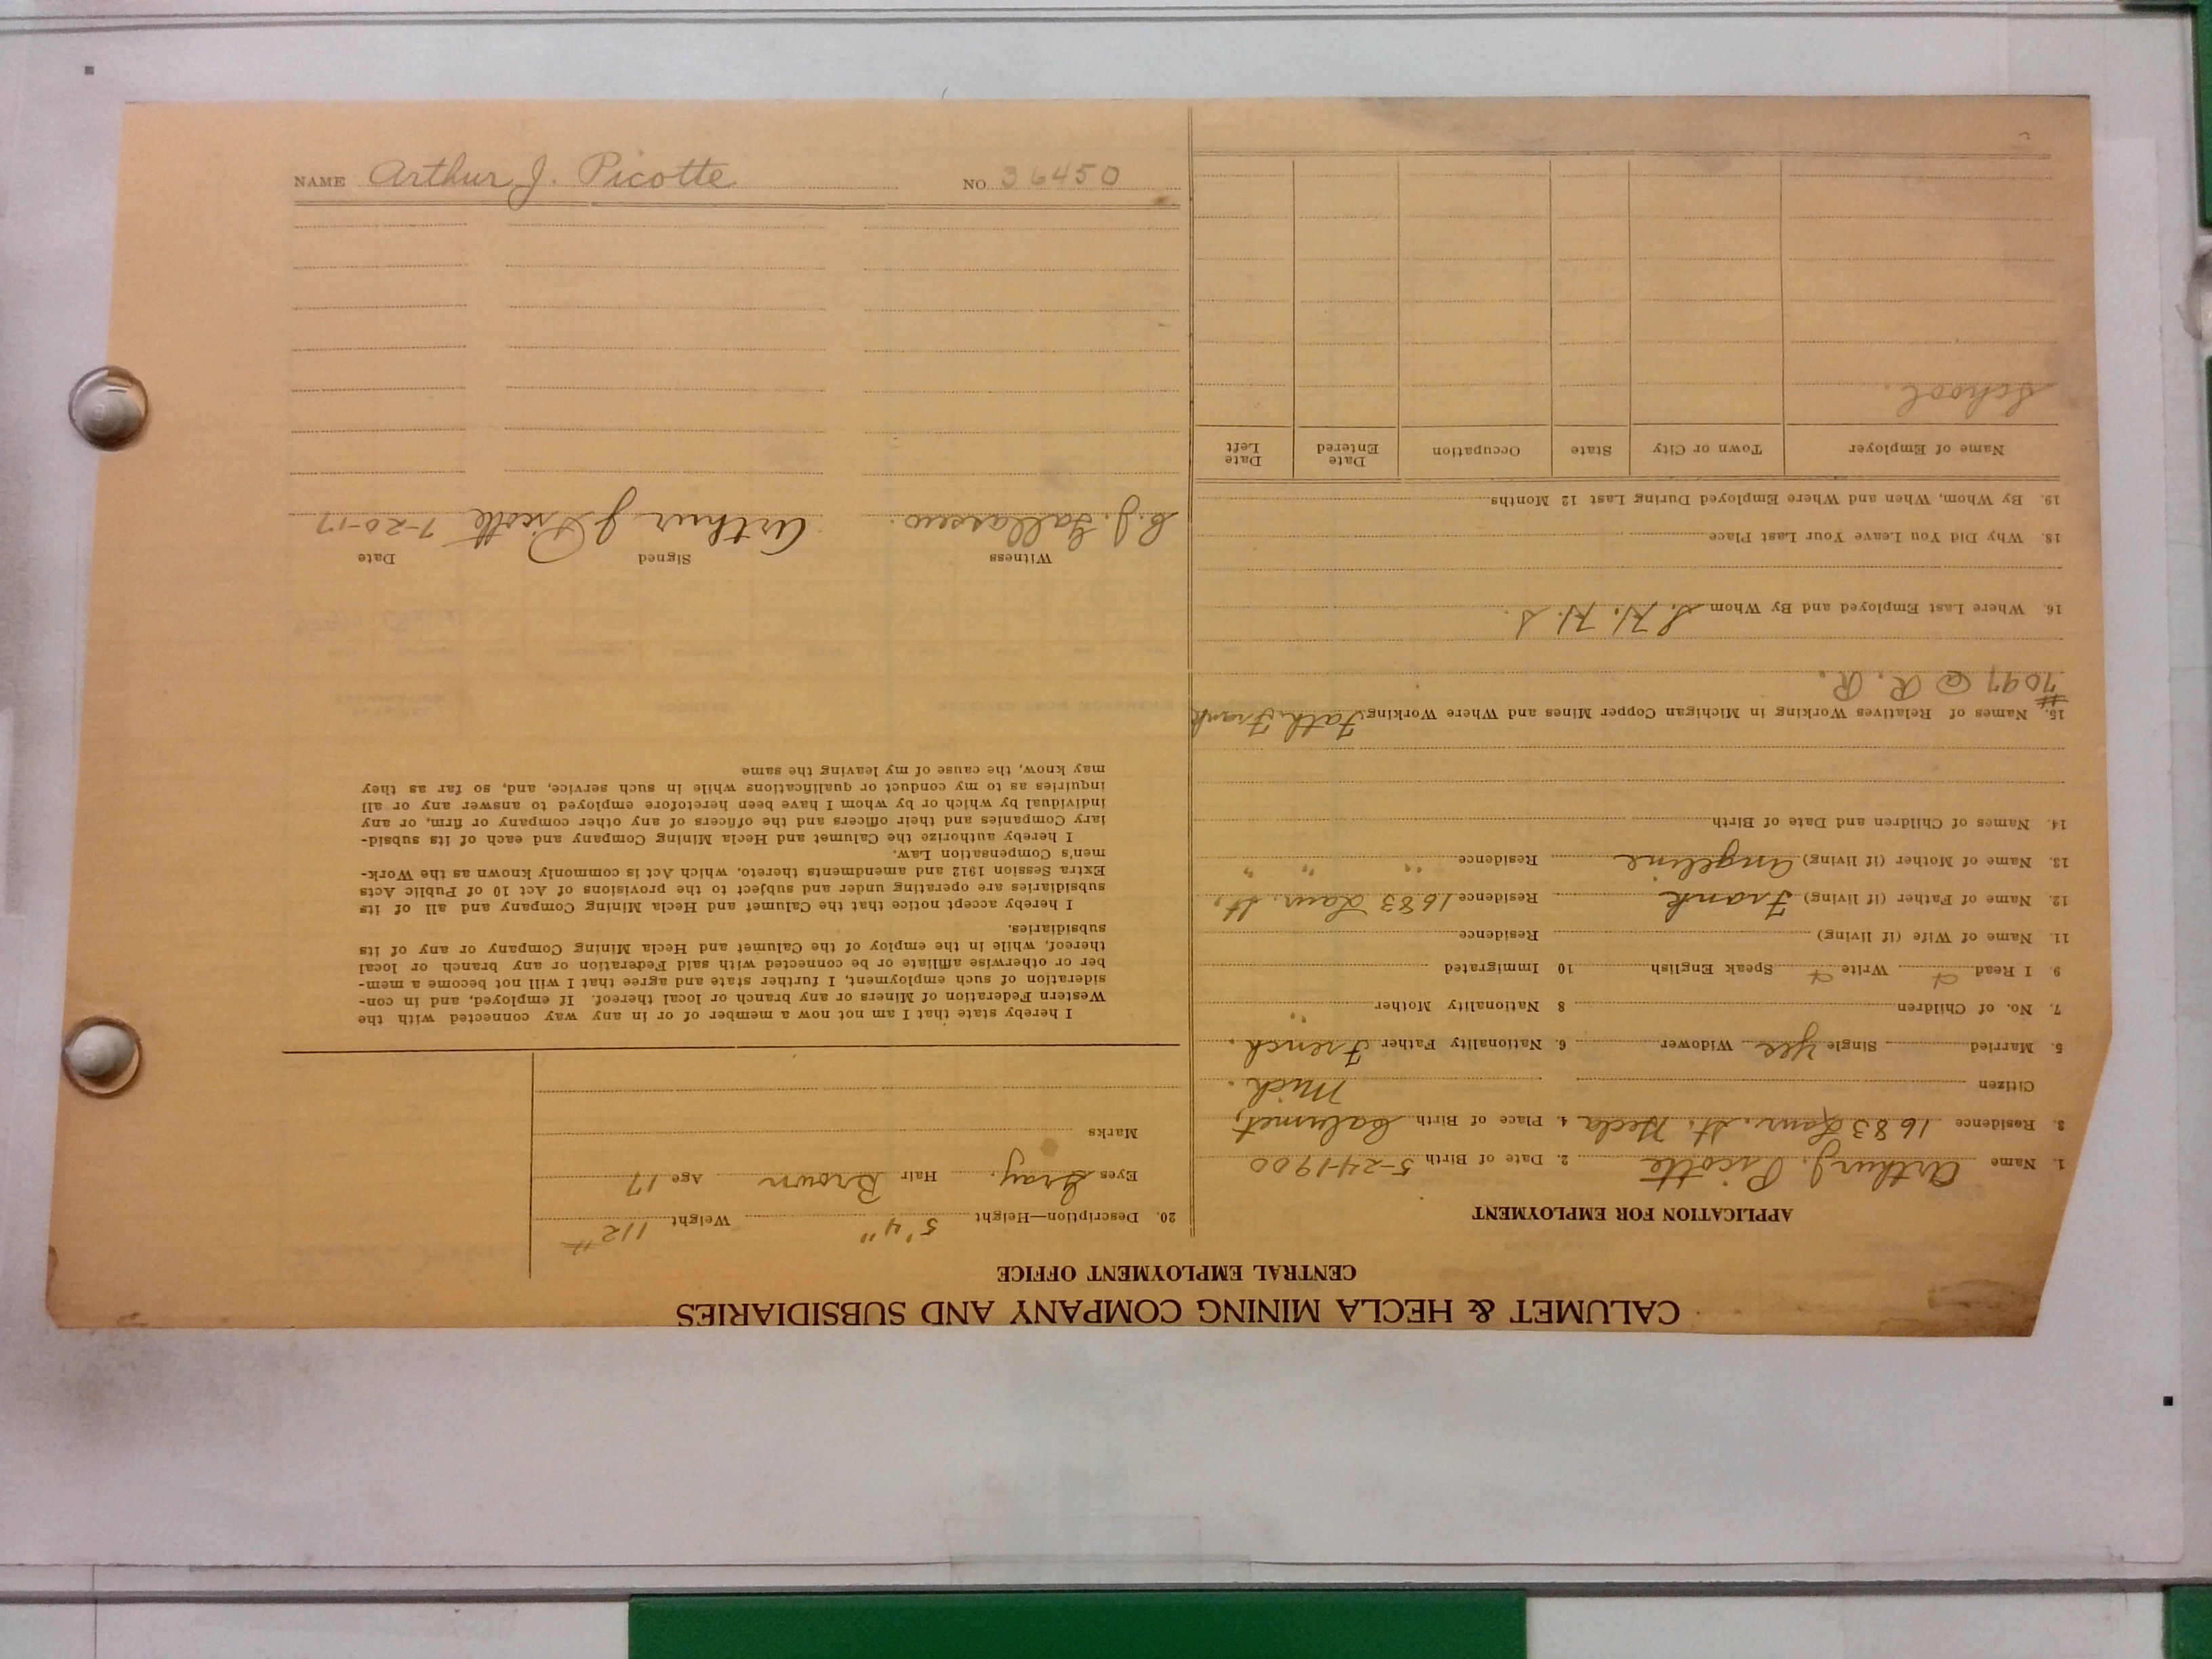 CALUMET & HECLA MINING COMPANY AND SUBSIDIARIES
CENTRAL EMPLOYMENT OFFICE
APPLICATION FOR EMPLOYMENT
1. Name Arthur J. Picotte 2. Date of Birth 5-24-1900
3. Residence 1683 Laur. St. Hecla 4. Place of Birth Calumet,
Citizen Mich.
5. Married Single Yes Widower 6. Nationality Father French.
7. No. of Children 8 Nationality Mother "
9. I Read Write Speak English 10 Immigrated
11. Name of Wife (if living) Residence
12. Name of Father (if living) Frank Residence 1683 Laur. St.
13. Name of Mother (if living) Angeline Residence " " "
14. Names of Children and Date of Birth
15. Names of Relatives Working in Michigan Copper Mines and Where Working Fath. Frank
# 7097 @ R. R.
16. Where Last Employed and By Whom
18. Why Did You Leave Your Last Place
19. By Whom, When and Where Employed During Last 12 Months
Name of Employer Town or City State Occupation Date Entered Date Left
School.
20. Description—Height 5'4" Weight 112 #
Eyes Gray. Hair Brown Age 17
Marks
I hereby state that I am not now a member of or in any way connected with the
Western Federation of Miners or any branch or local thereof. If employed, and in con-
sideration of such employment, I further state and agree that I will not become a mem-
ber or otherwise affiliate or be connected with said Federation or any branch or local
thereof, while in the employ of the Calumet and Hecla Mining Company or any of its
subsidiaries.
I hereby accept notice that the Calumet and Hecla Mining Company and all of its
subsidiaries are operating under and subject to the provisions of Act 10 of Public Acts
Extra Session 1912 and amendments thereto, which Act is commonly known as the Work-
men's Compensation Law.
I hereby authorize the Calumet and Hecla Mining Company and each of its subsid-
iary Companies and their officers and the officers of any other company or firm, or any
individual by which or by whom I have been heretofore employed to answer any or all
inquiries as to my conduct or qualifications while in such service, and, so far as they
may know, the cause of my leaving the same
Witness Signed Date
Arthur J Picotte 7-20-17
NAME Arthur J. Picotte NO 36450